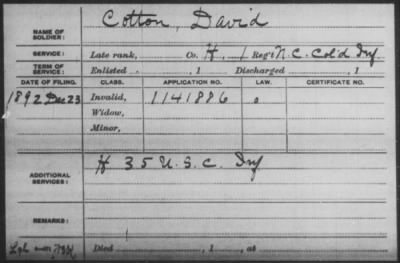 Cotton, David
NAME OF SOLDIER:
SERVICE: Late rank, Co. H, 1 Reg't N. C. Col'd Inf.
TERM OF SERVICE: Enlisted , 1 Discharged , 1
DATE OF FILING. CLASS. APPLICATION NO. LAW. CERTIFICATE NO.
1892 Dec 23 Invalid, 1141886
Widow,
Minor,
H 35 U. S. C. Inf
ADDITIONAL SERVICES:
REMARKS:
Died , 1 , at